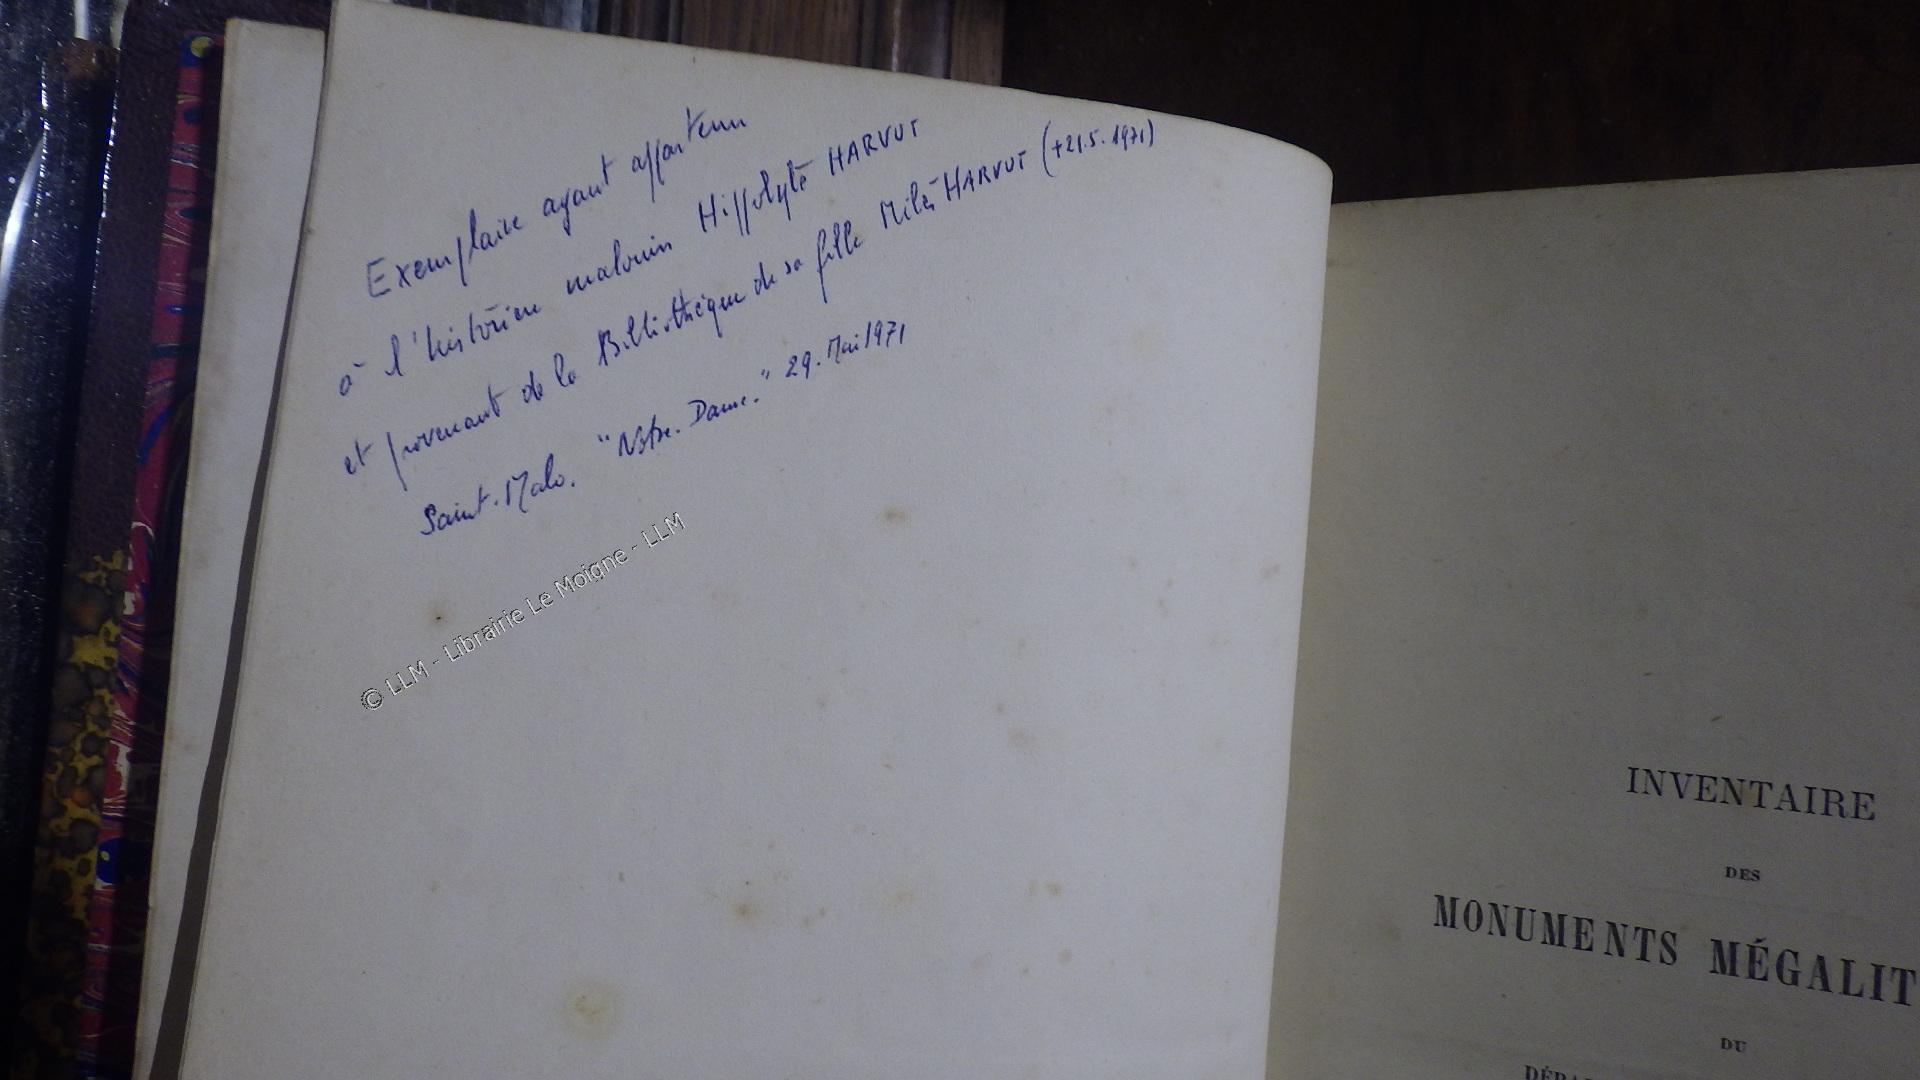 Exemplaire ayant appartenu
à l'historien malouin Hippolyte HARVUT
et provenant de la Bibliothèque de sa fille HARVUT (+21.5.1971)
Saint-Malo. "Notre-Dame." 29. Mai 1971
© LLM - Librairie Le Moigne - LLM
INVENTAIRE
DES
MONUMENTS MÉGALIT
DU